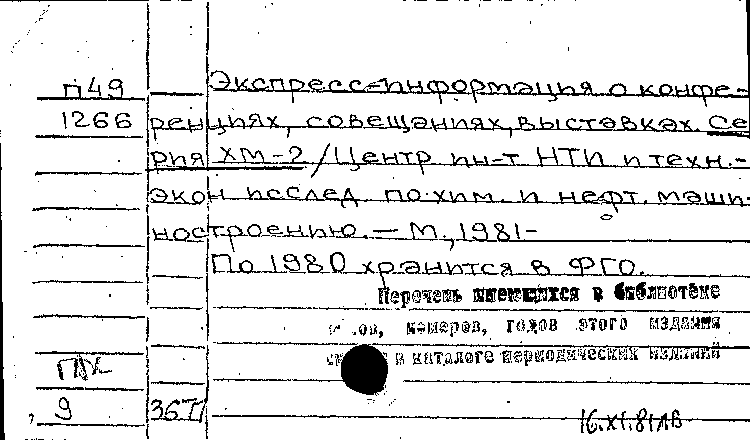 П49
1266
Экспресс-информация о конфе-
ренциях, совещаниях, выставках. Се
рия ХМ-2/Центр ин-т НТИ и техн.-
экон исслед. по хим. и нефт. маши-
ностроению. — М., 1981-
По 1980 хранится в ФГО.
Перечень имеющихся в библиотеке
номеров, годов этого издания
в каталоге периодических изданий
9
16.XI.81